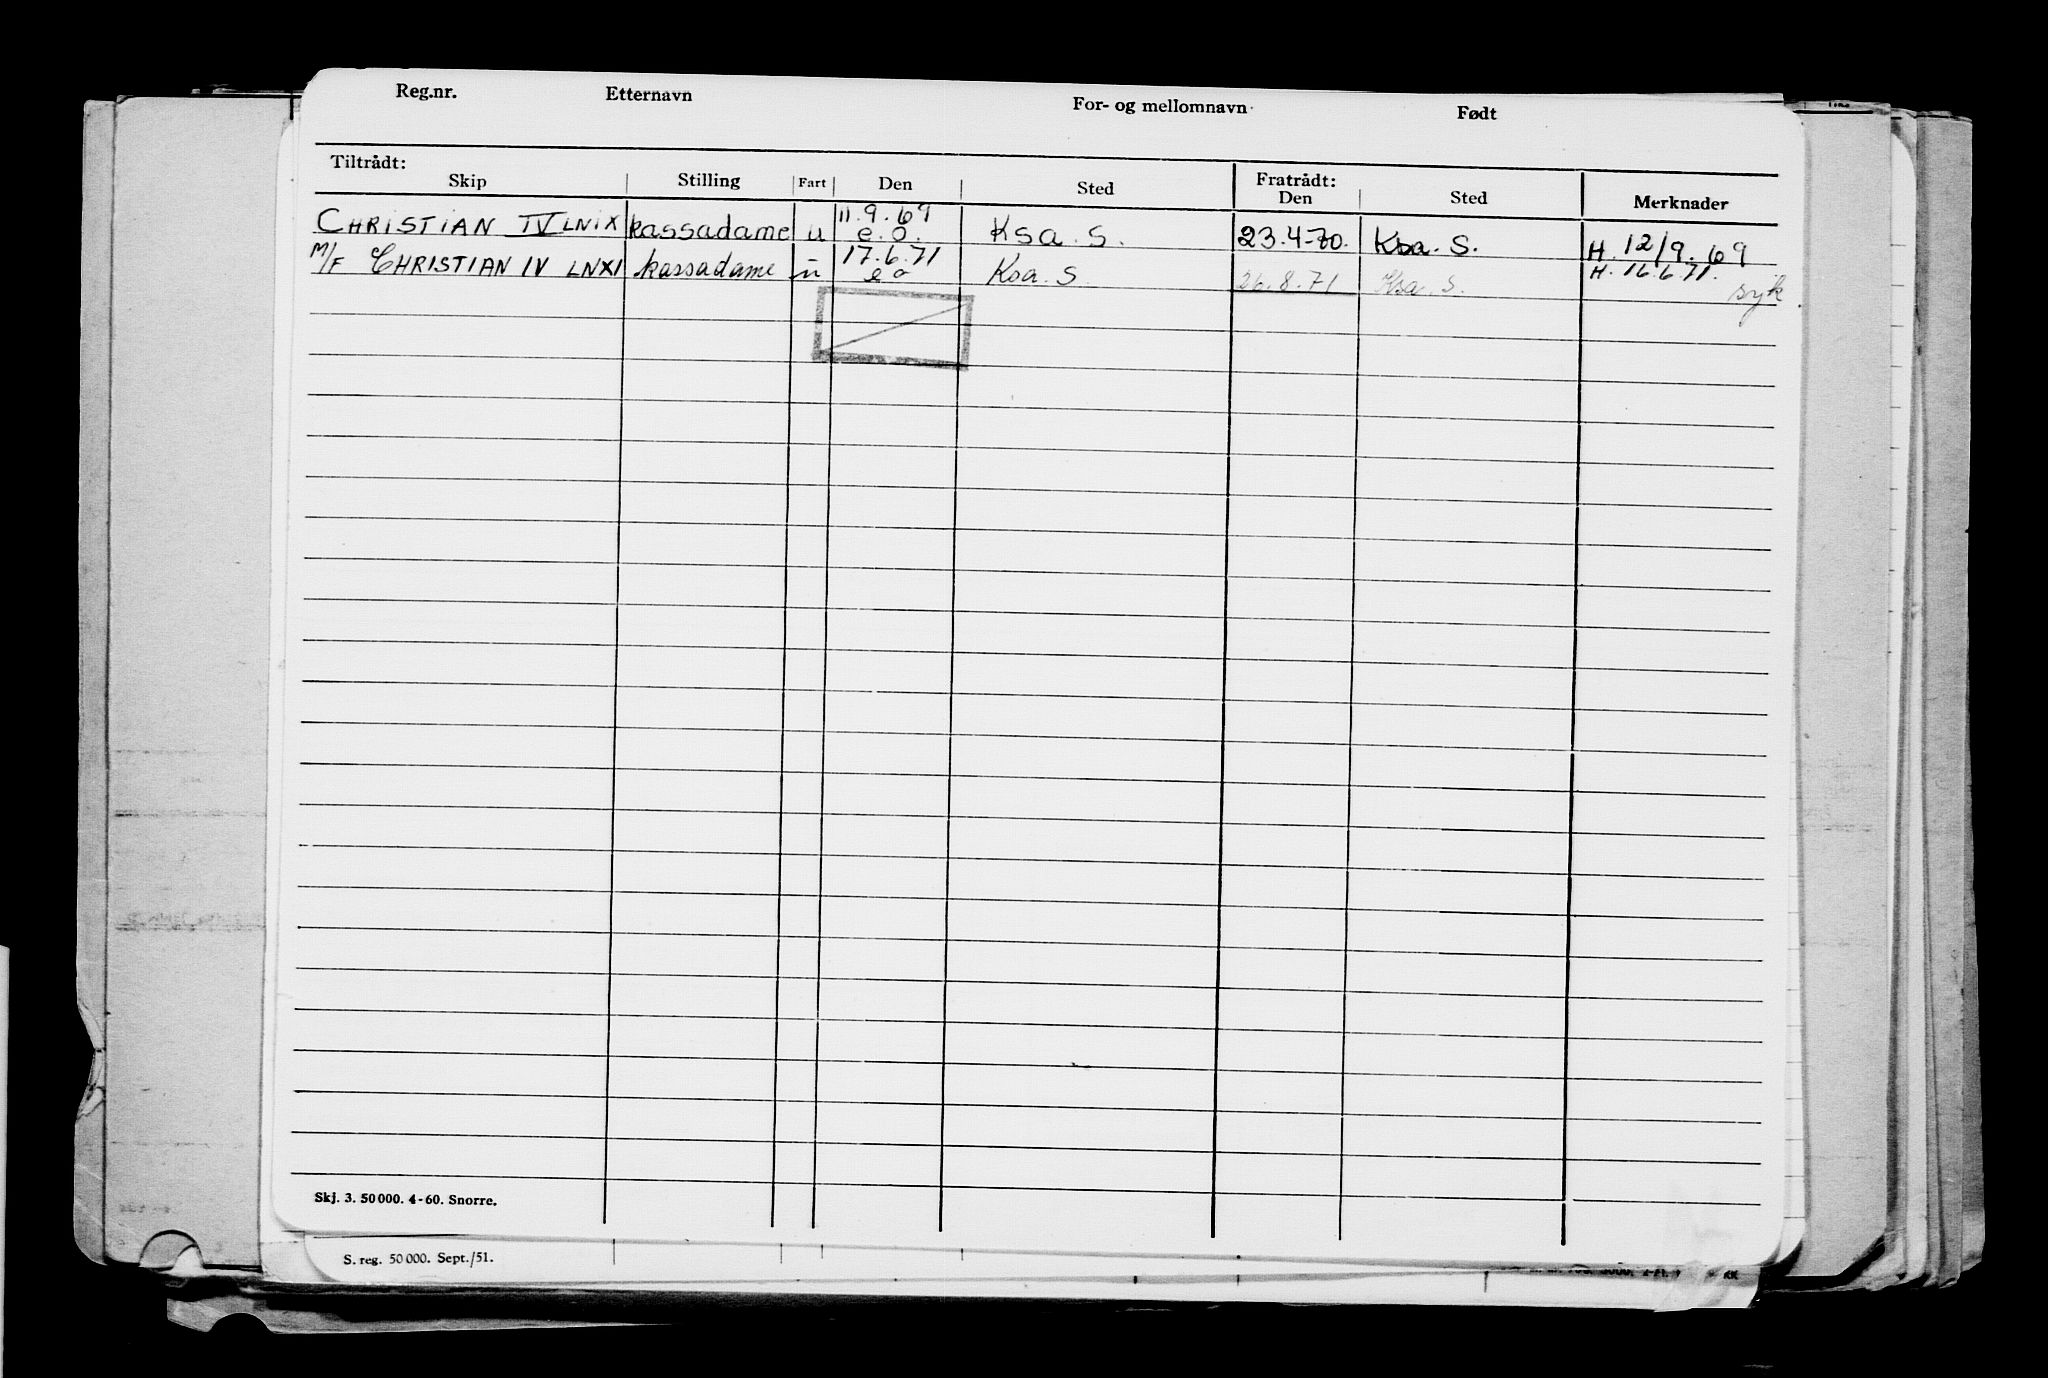 Reg.nr. Etternavn For- og mellomnavn Født
Tiltrådt: Fratrådt:
Skip Stilling Fart Den Sted Den Sted Merknader
CHRISTIAN IV LNIX kassadame u 11.9.69 e.o. Ksa. S. 23.4-70. Ksa. S. H. 12/9.69
M/F CHRISTIAN IV LNXI kassadame u 17.6.71 e o Ksa. S. 26.8.71 Ksa. S. H. 16.6.71. syk
Skj. 3. 50 000. 4-60. Snorre.
S. reg. 50 000. Sept./51.